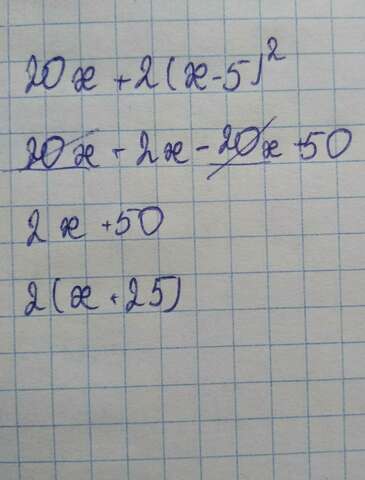 20x + 2(x-5)²
20x + 2x - 20x + 50
2x + 50
2(x + 25)